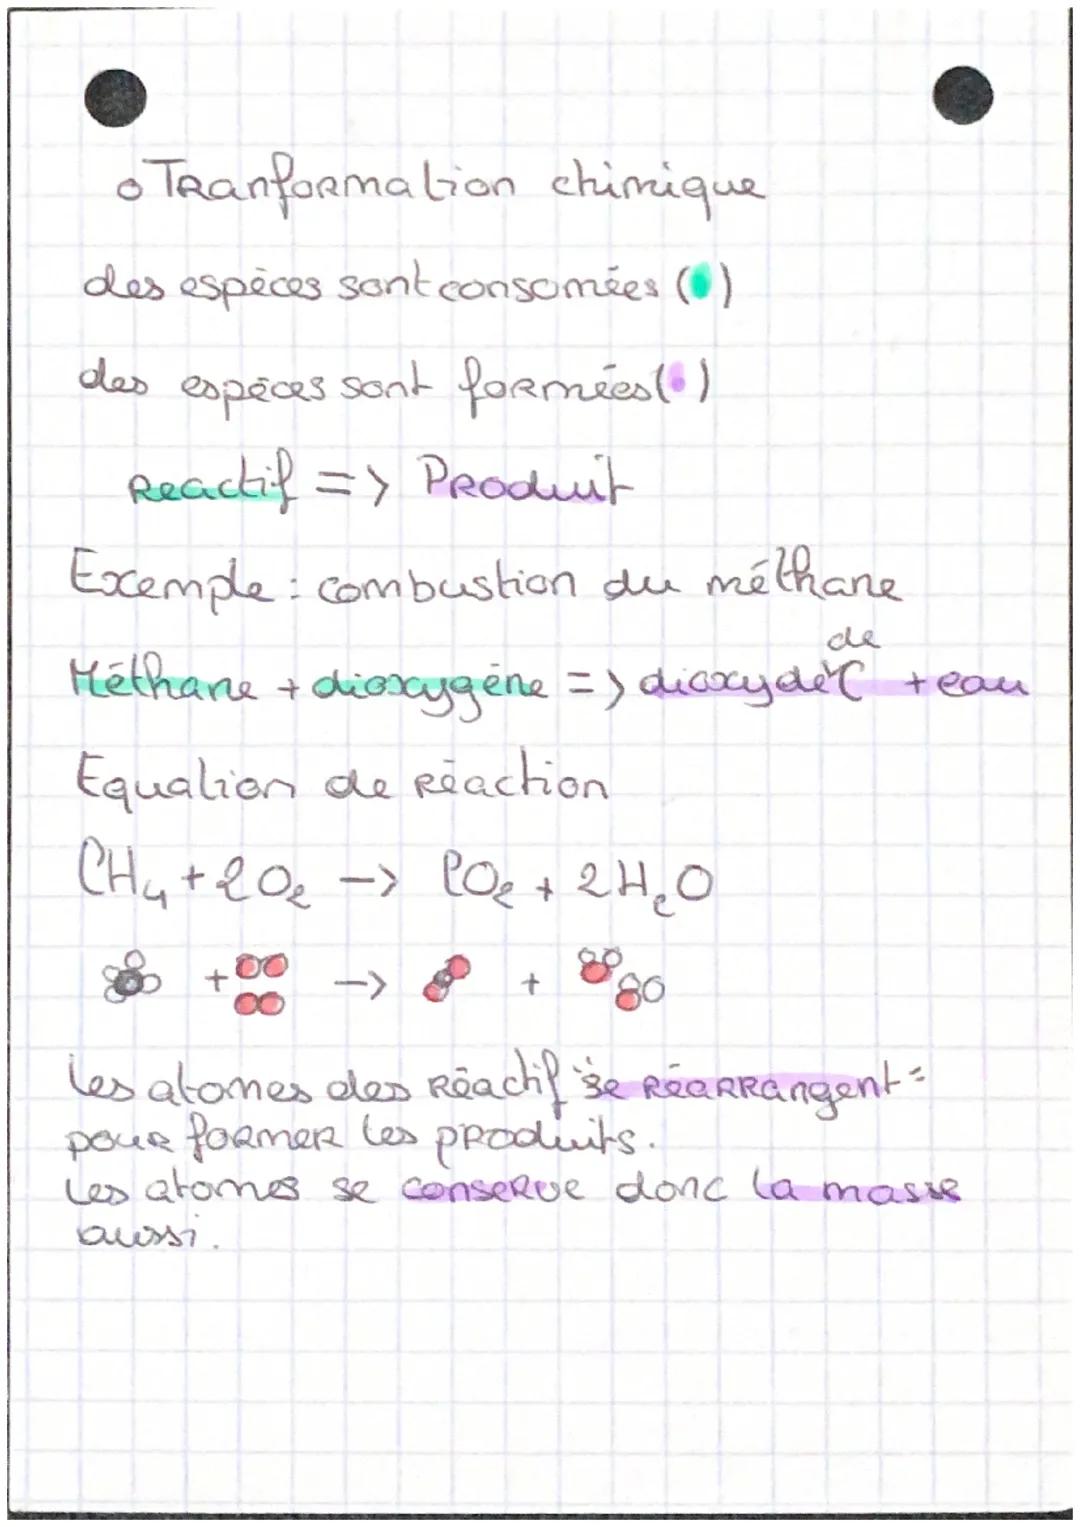 o Tranformation chimique
des espèces sont consomées ( )
des espèces sont formées ( )
Reactif => Produit
Exemple : combustion du méthane
Méthane + dioxygène => dioxyde de C + eau
Equation de réaction
CH₄ + 2O₂ -> CO₂ + 2H₂O
+ -> +
Les atomes des Réactif se réarrangent
pour former les produits.
Les atomes se conserve donc la masse
aussi.